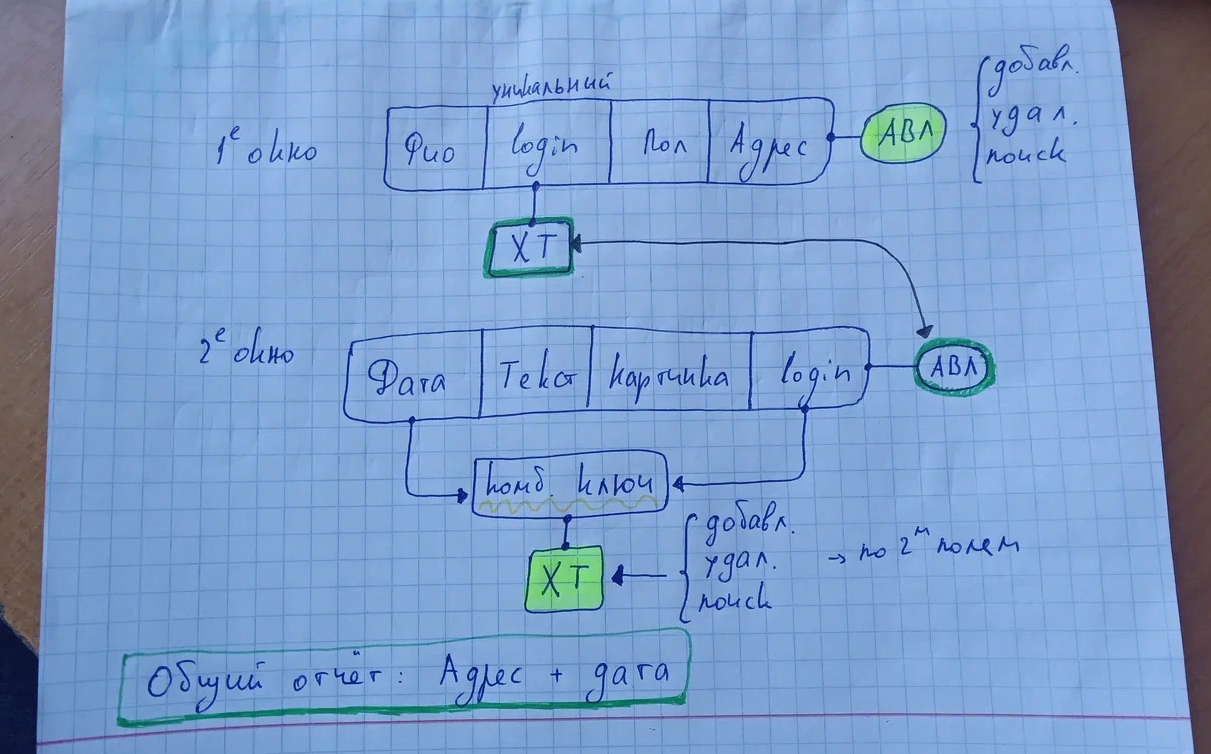 уникальный
1е окно
Фио
login
Пол
Адрес
АВЛ
добавл.
удал.
поиск
ХТ
2е окно
Дата
Текст
Картинка
login
АВЛ
комб. ключ
ХТ
добавл.
удал.
поиск
→ по 2м полям
Общий отчёт: Адрес + дата